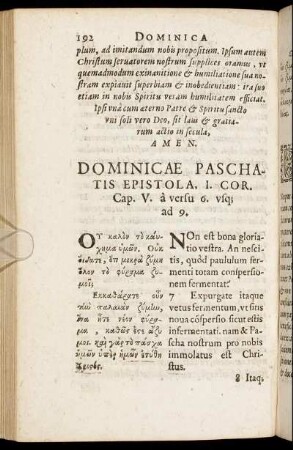 192 DOMINICA
plum, ad imitandum nobis propositum. Ipsum autem
Christum seruatorem nostrum supplices oramus, vt
quemadmodum exinanitione & humiliatione sua no-
stram expiauit superbiam & inobedientiam: ita suo
etiam in nobis Spiritu veram humilitatem efficiat.
Ipsi vnà cum æterno Patre & Spiritu sancto
vni soli vero Deo, sit laus & gratia-
rum actio in secula,
AMEN.
DOMINICAE PASCHA-
TIS EPISTOLA. I. COR.
Cap. V. à versu 6. vsq;
ad 9.
ΟΥ καλὸν τὸ καύ-
χημα ὑμῶν. Οὐκ
οἴδατε, ὅτι μικρὰ ζύμη
ὅλον τὸ φύραμα ζυ-
μοῖ;
Εκκαθάρατε οὖν
τὴν παλαιὰν ζύμην,
ἵνα ἦτε νέον φύρα-
μα, καθώς ἐστε ἄζυ-
μοι. καὶ γὰρ τὸ πάσχα
ἡμῶν ὑπὲρ ἡμῶν ἐτύθη
Χριστός.
NOn est bona gloria-
tio vestra. An nesci-
tis, quòd paululum fer-
menti totam conspersio-
nem fermentat?
7 Expurgate itaque
vetus fermentum, vt sitis
noua cõspersio sicut estis
infermentati. nam & Pa-
scha nostrum pro nobis
immolatus est Chri-
stus.
8 Itaq;